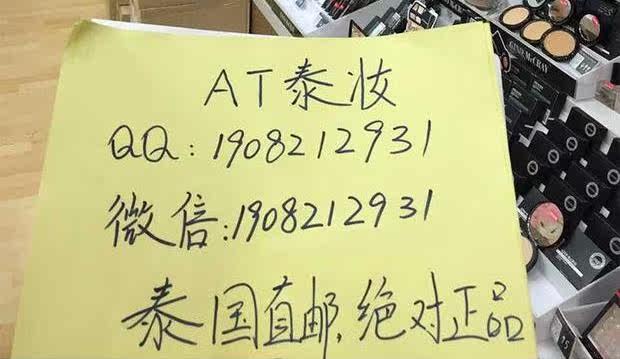 AT泰妆
QQ:1908212931
微信:1908212931
泰国直邮,绝对正品